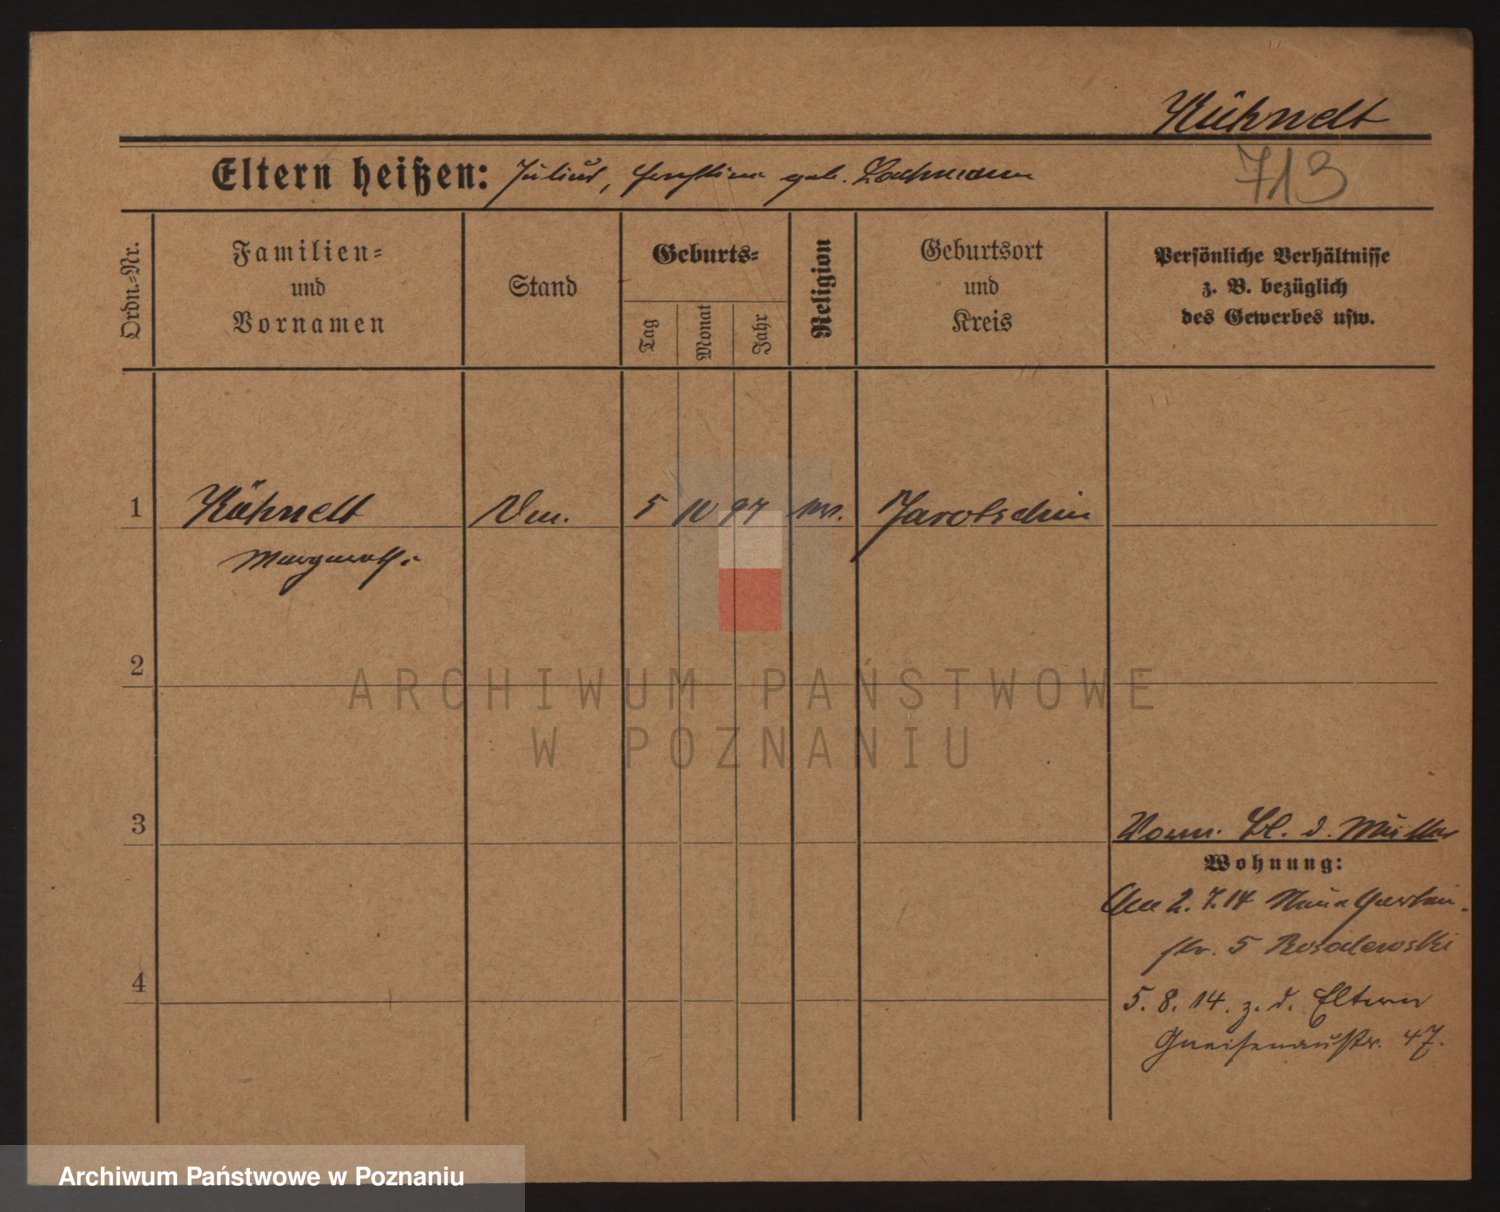 Kühnelt
713
Eltern heißen: Julius, Ernstine geb. Lachmann
Ordn.-Nr.
Familien-
und
Vornamen
Stand
Geburts-
Tag
Monat
Jahr
Religion
Geburtsort
und
Kreis
Persönliche Verhältnisse
z. B. bezüglich
des Gewerbes usw.
1 Kühnelt 5 10 97 Jarotschin
Margareth
2
ARCHIWUM PAŃSTWOWE
W POZNANIU
3
Vorm. Bl. d. Mutter
Wohnung:
2.7.14 Neue Garten-
str. 5 Rosalewski
4
5. 8. 14. z. d. Eltern
Gneisenaustr. 47.
Archiwum Państwowe w Poznaniu